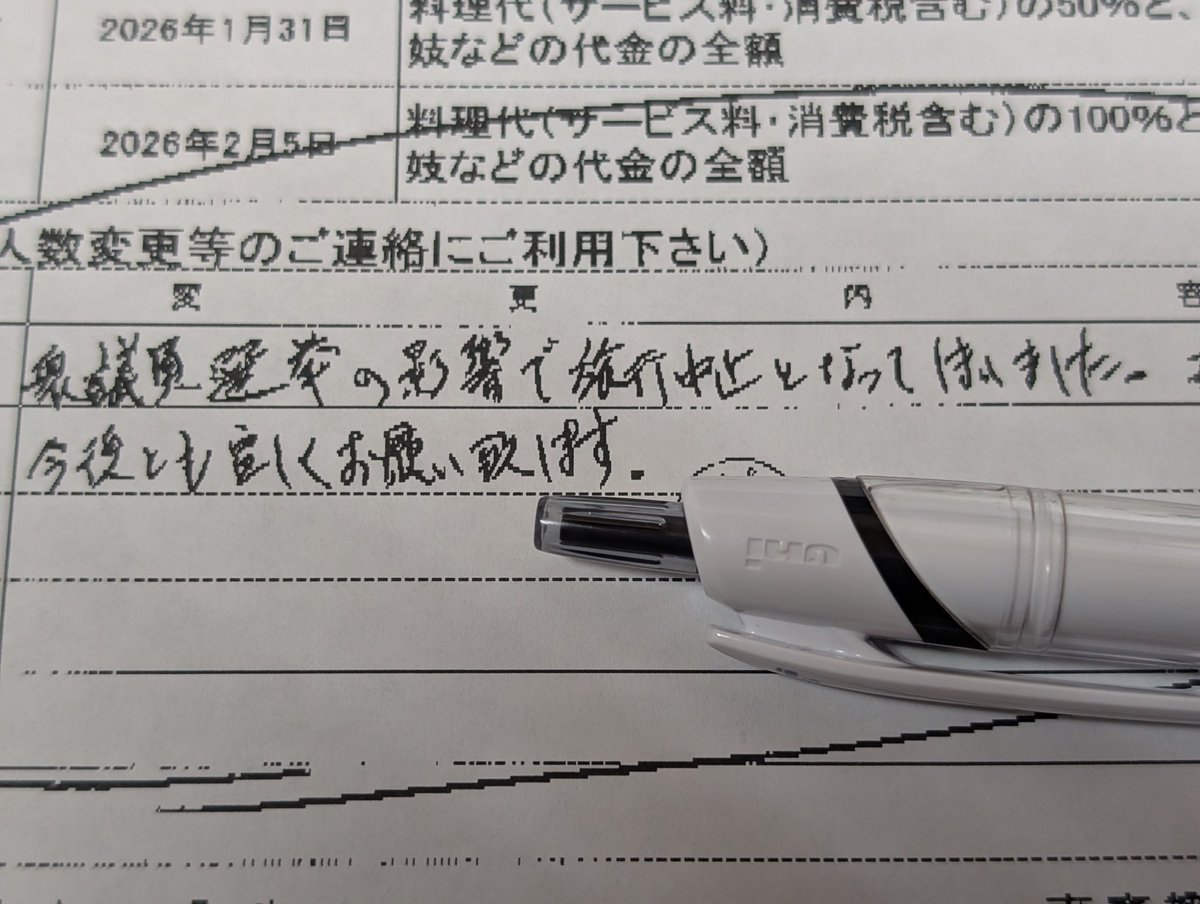 2026年1月31日
料理代(サービス料・消費税含む)の50%と、
妓などの代金の全額
2026年2月5日
料理代(サービス料・消費税含む)の100%と
妓などの代金の全額
人数変更等のご連絡にご利用下さい)
変 更 内 容
衆議員選挙の影響で旅行中止となってしまいました。
今後とも宜しくお願い致します。
uni